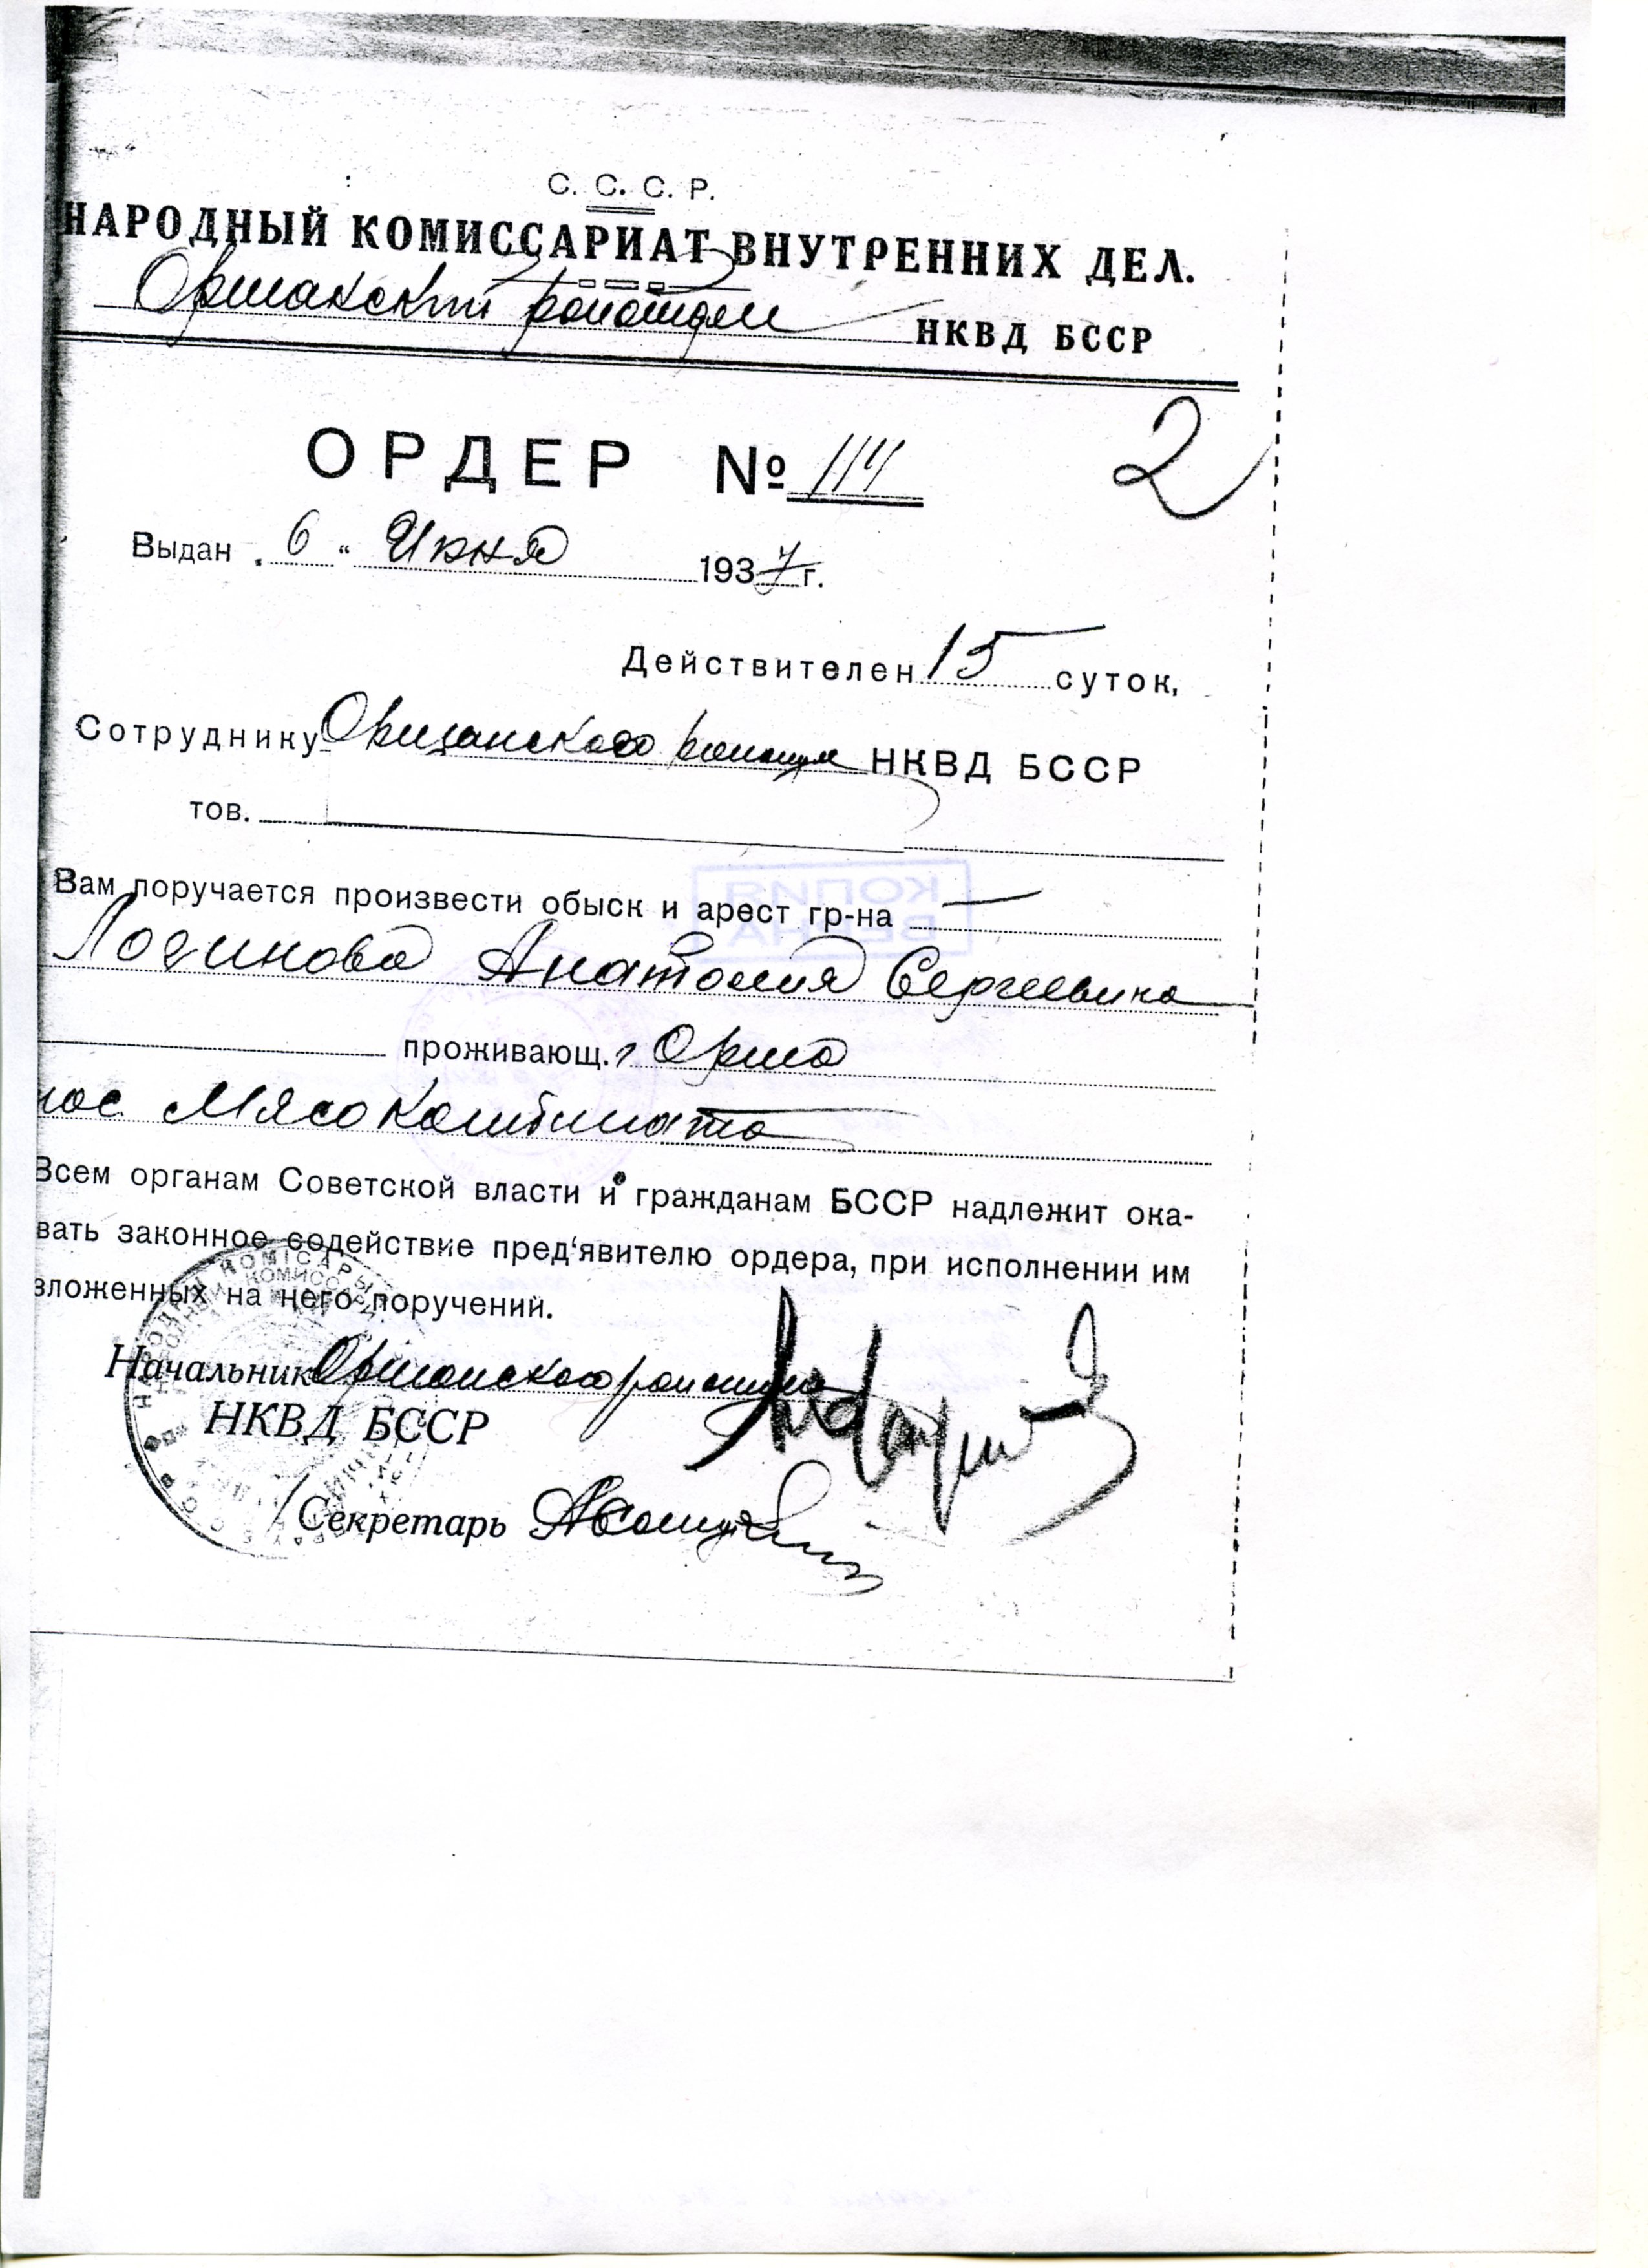 С. С. С. Р.
НАРОДНЫЙ КОМИССАРИАТ ВНУТРЕННИХ ДЕЛ.
Оршанский райотдел НКВД БССР
ОРДЕР № 114
2
Выдан „6“ Июня 1937 г.
Действителен 15 суток,
Сотруднику Оршанского райотдел НКВД БССР
тов.
Вам поручается произвести обыск и арест гр-на
Логинова Анатолия Сергеевича
проживающ. г Орша
пос Мясокомбината
Всем органам Советской власти и гражданам БССР надлежит ока-
вать законное содействие пред'явителю ордера, при исполнении им
зложенных на него поручений.
Начальник Оршанского райотдела
НКВД БССР
Секретарь
КОПИЯ
ВЕРНА